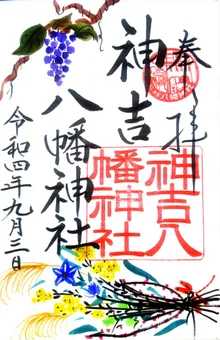 奉拝
神吉八幡神社
神吉八
幡神社
令和四年九月三日